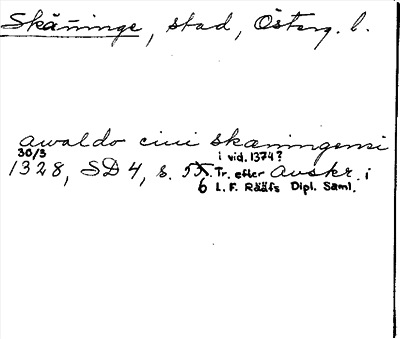 Skäninge, stad, Österg. l.
awaldo ciui skæningensi
30/3 i vid. 1374?
1328, SD 4, s. 55. Tr. efter Avskr. i
6 L. F. Rääfs Dipl. Saml.